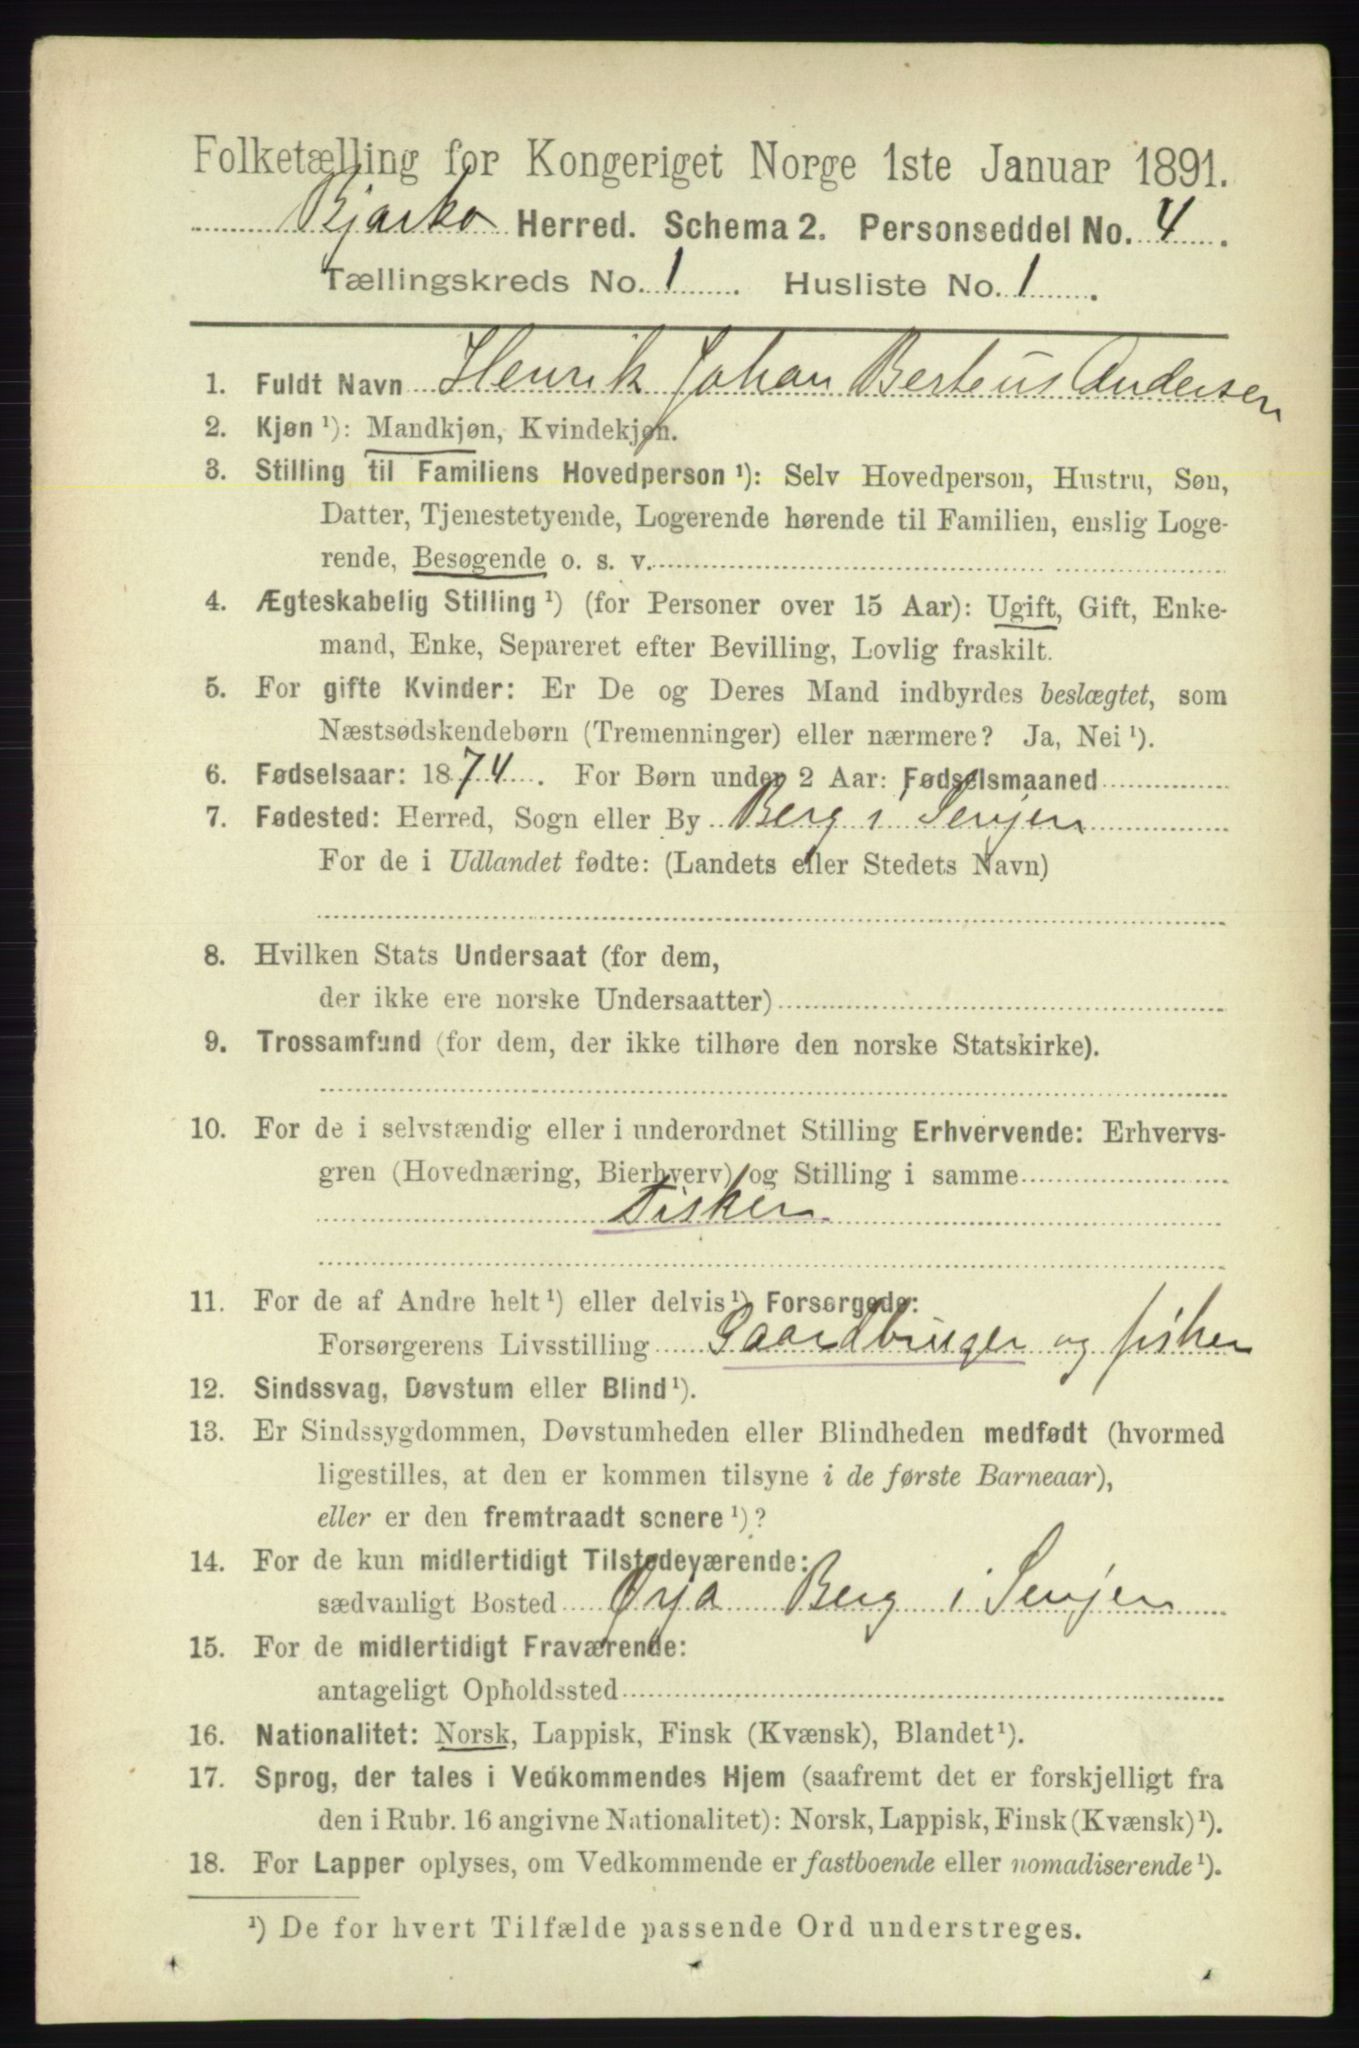 Folketælling for Kongeriget Norge 1ste Januar 1891.
Bjarkø Herred. Schema 2. Personseddel No. 4.
Tællingskreds No. 1. Husliste No. 1.
1. Fuldt Navn Henrik Johan Berteus Andersen
2. Kjøn ¹): Mandkjøn, Kvindekjøn.
3. Stilling til Familiens Hovedperson ¹): Selv Hovedperson, Hustru, Søn,
Datter, Tjenestetyende, Logerende hørende til Familien, enslig Loge-
rende, Besøgende o. s. v.
4. Ægteskabelig Stilling ¹) (for Personer over 15 Aar): Ugift, Gift, Enke-
mand, Enke, Separeret efter Bevilling, Lovlig fraskilt.
5. For gifte Kvinder: Er De og Deres Mand indbyrdes beslægtet, som
Næstsødskendebørn (Tremenninger) eller nærmere? Ja, Nei ¹).
6. Fødselsaar: 1874. For Børn under 2 Aar: Fødselsmaaned
7. Fødested: Herred, Sogn eller By Berg i Senjen
For de i Udlandet fødte: (Landets eller Stedets Navn)
8. Hvilken Stats Undersaat (for dem,
der ikke ere norske Undersaatter)
9. Trossamfund (for dem, der ikke tilhøre den norske Statskirke).
10. For de i selvstændig eller i underordnet Stilling Erhvervende: Erhvervs-
gren (Hovednæring, Bierhverv) og Stilling i samme
Fisker
11. For de af Andre helt ¹) eller delvis ¹) Forsørgede:
Forsørgerens Livsstilling Gaardbruger og fisker
12. Sindssvag, Døvstum eller Blind ¹).
13. Er Sindssygdommen, Døvstumheden eller Blindheden medfødt (hvormed
ligestilles, at den er kommen tilsyne i de første Barneaar),
eller er den fremtraadt senere ¹)?
14. For de kun midlertidigt Tilstedeværende:
sædvanligt Bosted Øya Berg i Senjen
15. For de midlertidigt Fraværende:
antageligt Opholdssted
16. Nationalitet: Norsk, Lappisk, Finsk (Kvænsk), Blandet ¹).
17. Sprog, der tales i Vedkommendes Hjem (saafremt det er forskjelligt fra
den i Rubr. 16 angivne Nationalitet): Norsk, Lappisk, Finsk (Kvænsk) ¹).
18. For Lapper oplyses, om Vedkommende er fastboende eller nomadiserende ¹).
¹) De for hvert Tilfælde passende Ord understreges.